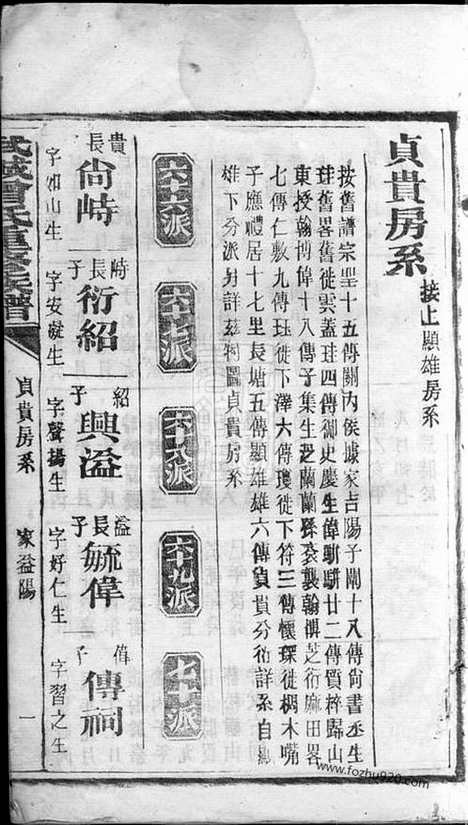 貞貴房系
接上顯雄房系
按舊譜宗聖十五傳關內侯據家吉陽子闡十八傳尚書丞生
珪舊畧舊徙雲蓋珪四傳御史慶生偉駢駢廿二傳質粹歸山
東授翰博偉十八傳子集生芝蘭蘭孫衮襲翰撰芝衍麻田畧
七傳仁敷九傳珏徙下澤六傳瓊徙下符三傳懷琛徙枫木嘴
子應禮居十七里長塘五傳顯雄雄六傳貞貴分衍詳系自顯
雄下分派另詳茲特圖貞貴房系
六十六派
六十七派
六十八派
六十九派
七十派
貴長
尚峙
字如山生
峙長子
衍紹
字安凝生
紹子
興溢
字聲揚生
溢長子
毓偉
字好仁生
偉子
傳祠
字習之生
武城曾氏重修族譜
貞貴房系
家益陽
一
www.fozhu920.com